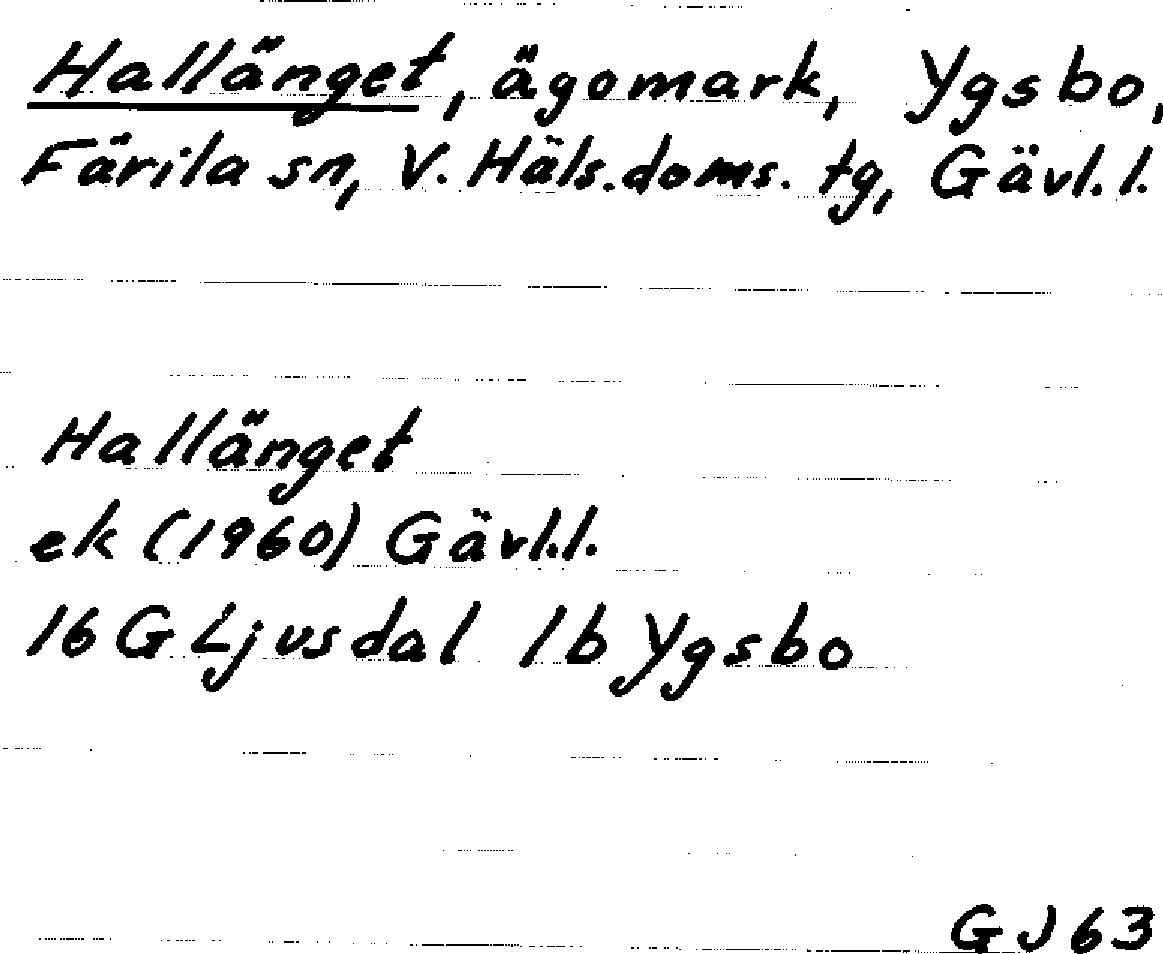 Hallänget, ägomark, Ygsbo,
Färila sn, V. Häls. doms. tg, Gävl. l.
Hallänget
ek (1960) Gävl. l.
16 G Ljusdal 1b Ygsbo
GJ 63